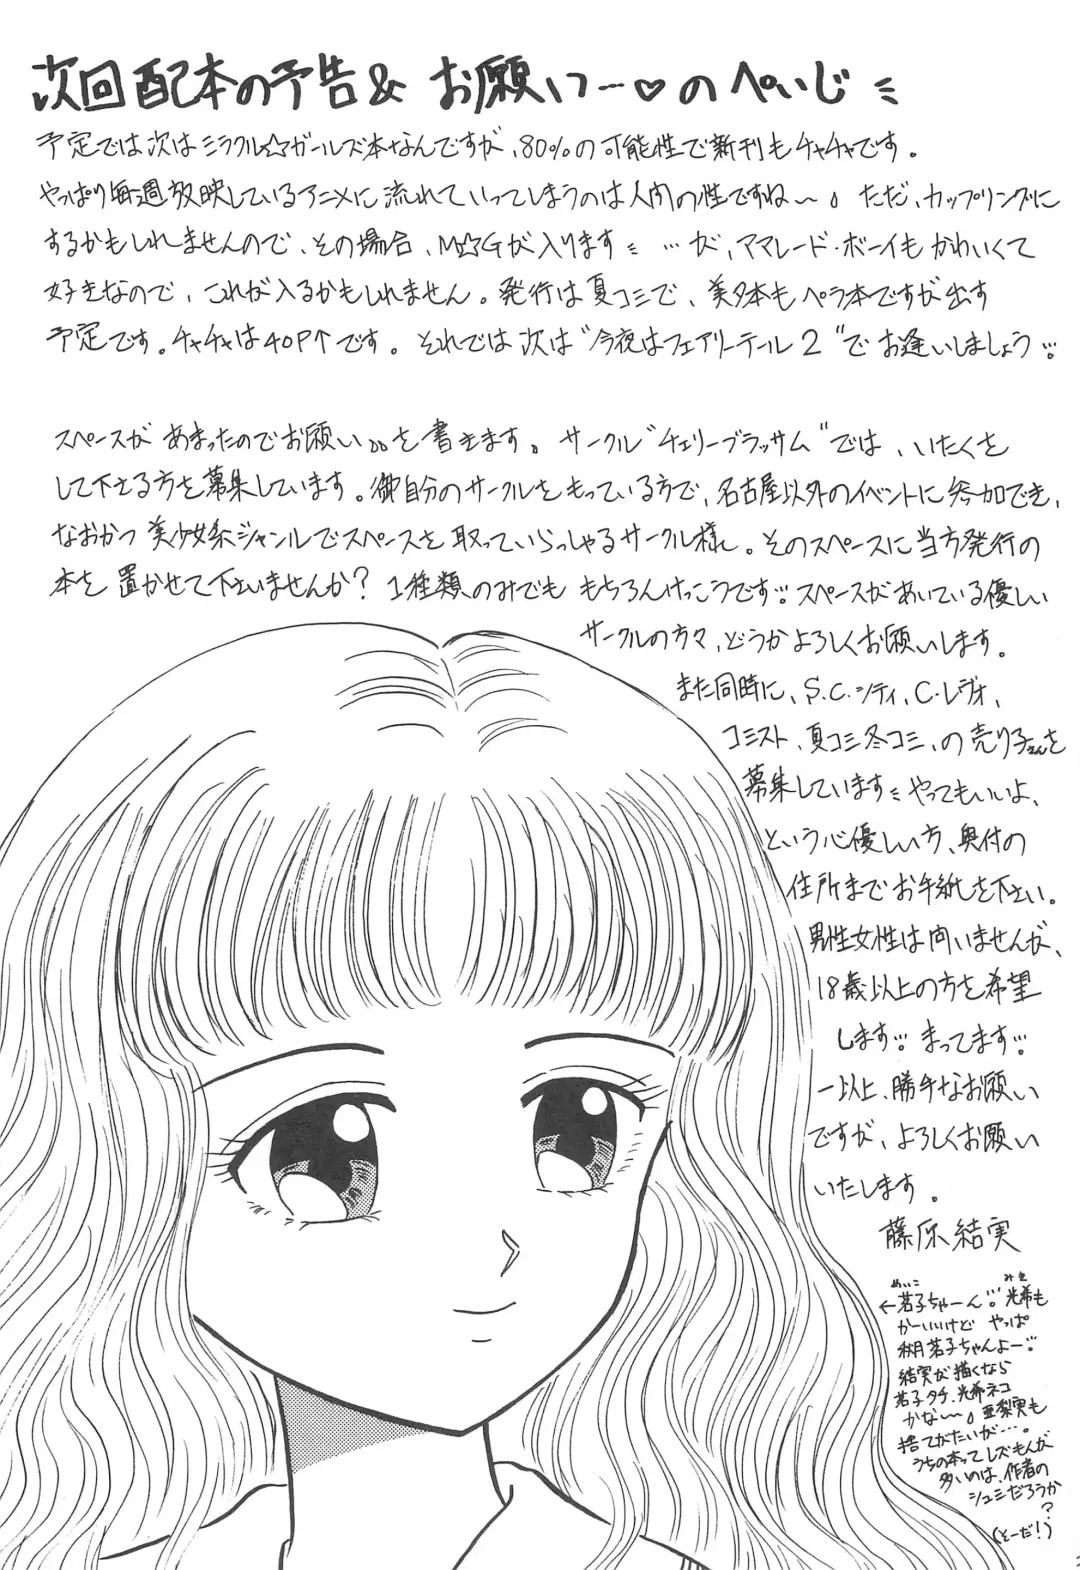 次回配本の予告& お願いっ…♡のぺいじ
予定では次はミラクル☆ガールズ本なんですが、80%の可能性で新刊もチャチャです。
やっぱり毎週放映しているアニメに流れていってしまうのは人間の性ですね〜。ただ、カップリングに
するかもしれませんので、その場合、M☆Gが入ります …が、ママレード・ボーイもかわいくて
好きなので、これが入るかもしれません。発行は夏コミで、美夕本もペラ本ですが出す
予定です。チャチャは40P↑です。それでは次は“今夜はフェアリーテール2”でお逢いしましょう
スペースがあまったのでお願い。。を書きます。サークル“チェリーブラッサム”では、いたくを
して下さる方を募集しています。御自分のサークルをもっている方で、名古屋以外のイベントに参加でき、
なおかつ美少女系ジャンルでスペースを取っていらっしゃるサークル様。そのスペースに当方発行の
本を置かせて下さいませんか？1種類のみでももちろんけっこうです スペースがあいている優しい
サークルの方々、どうかよろしくお願いします。
また同時に、S.C.シティ、C・レヴォ、
コミスト、夏コミ冬コミ、の売り子さんを
募集しています やってもいいよ、
という心優しい方、奥付の
住所までお手紙を下さい。
男性女性は問いませんが、
18歳以上の方を希望
します まってます
一以上、勝手なお願い
ですが、よろしくお願い
いたします。
藤原結実
めいこ みき
←茗子ちゃーん 光希も
かーいいけど やっぱ
秋月茗子ちゃんよー
結実が描くなら
茗子タチ、光希ネコ
かな〜。亜梨実も
捨てがたいが…。
うちの本ってレズもんが
多いのは、作者の
シュミだろうか
?
(そーだ!)